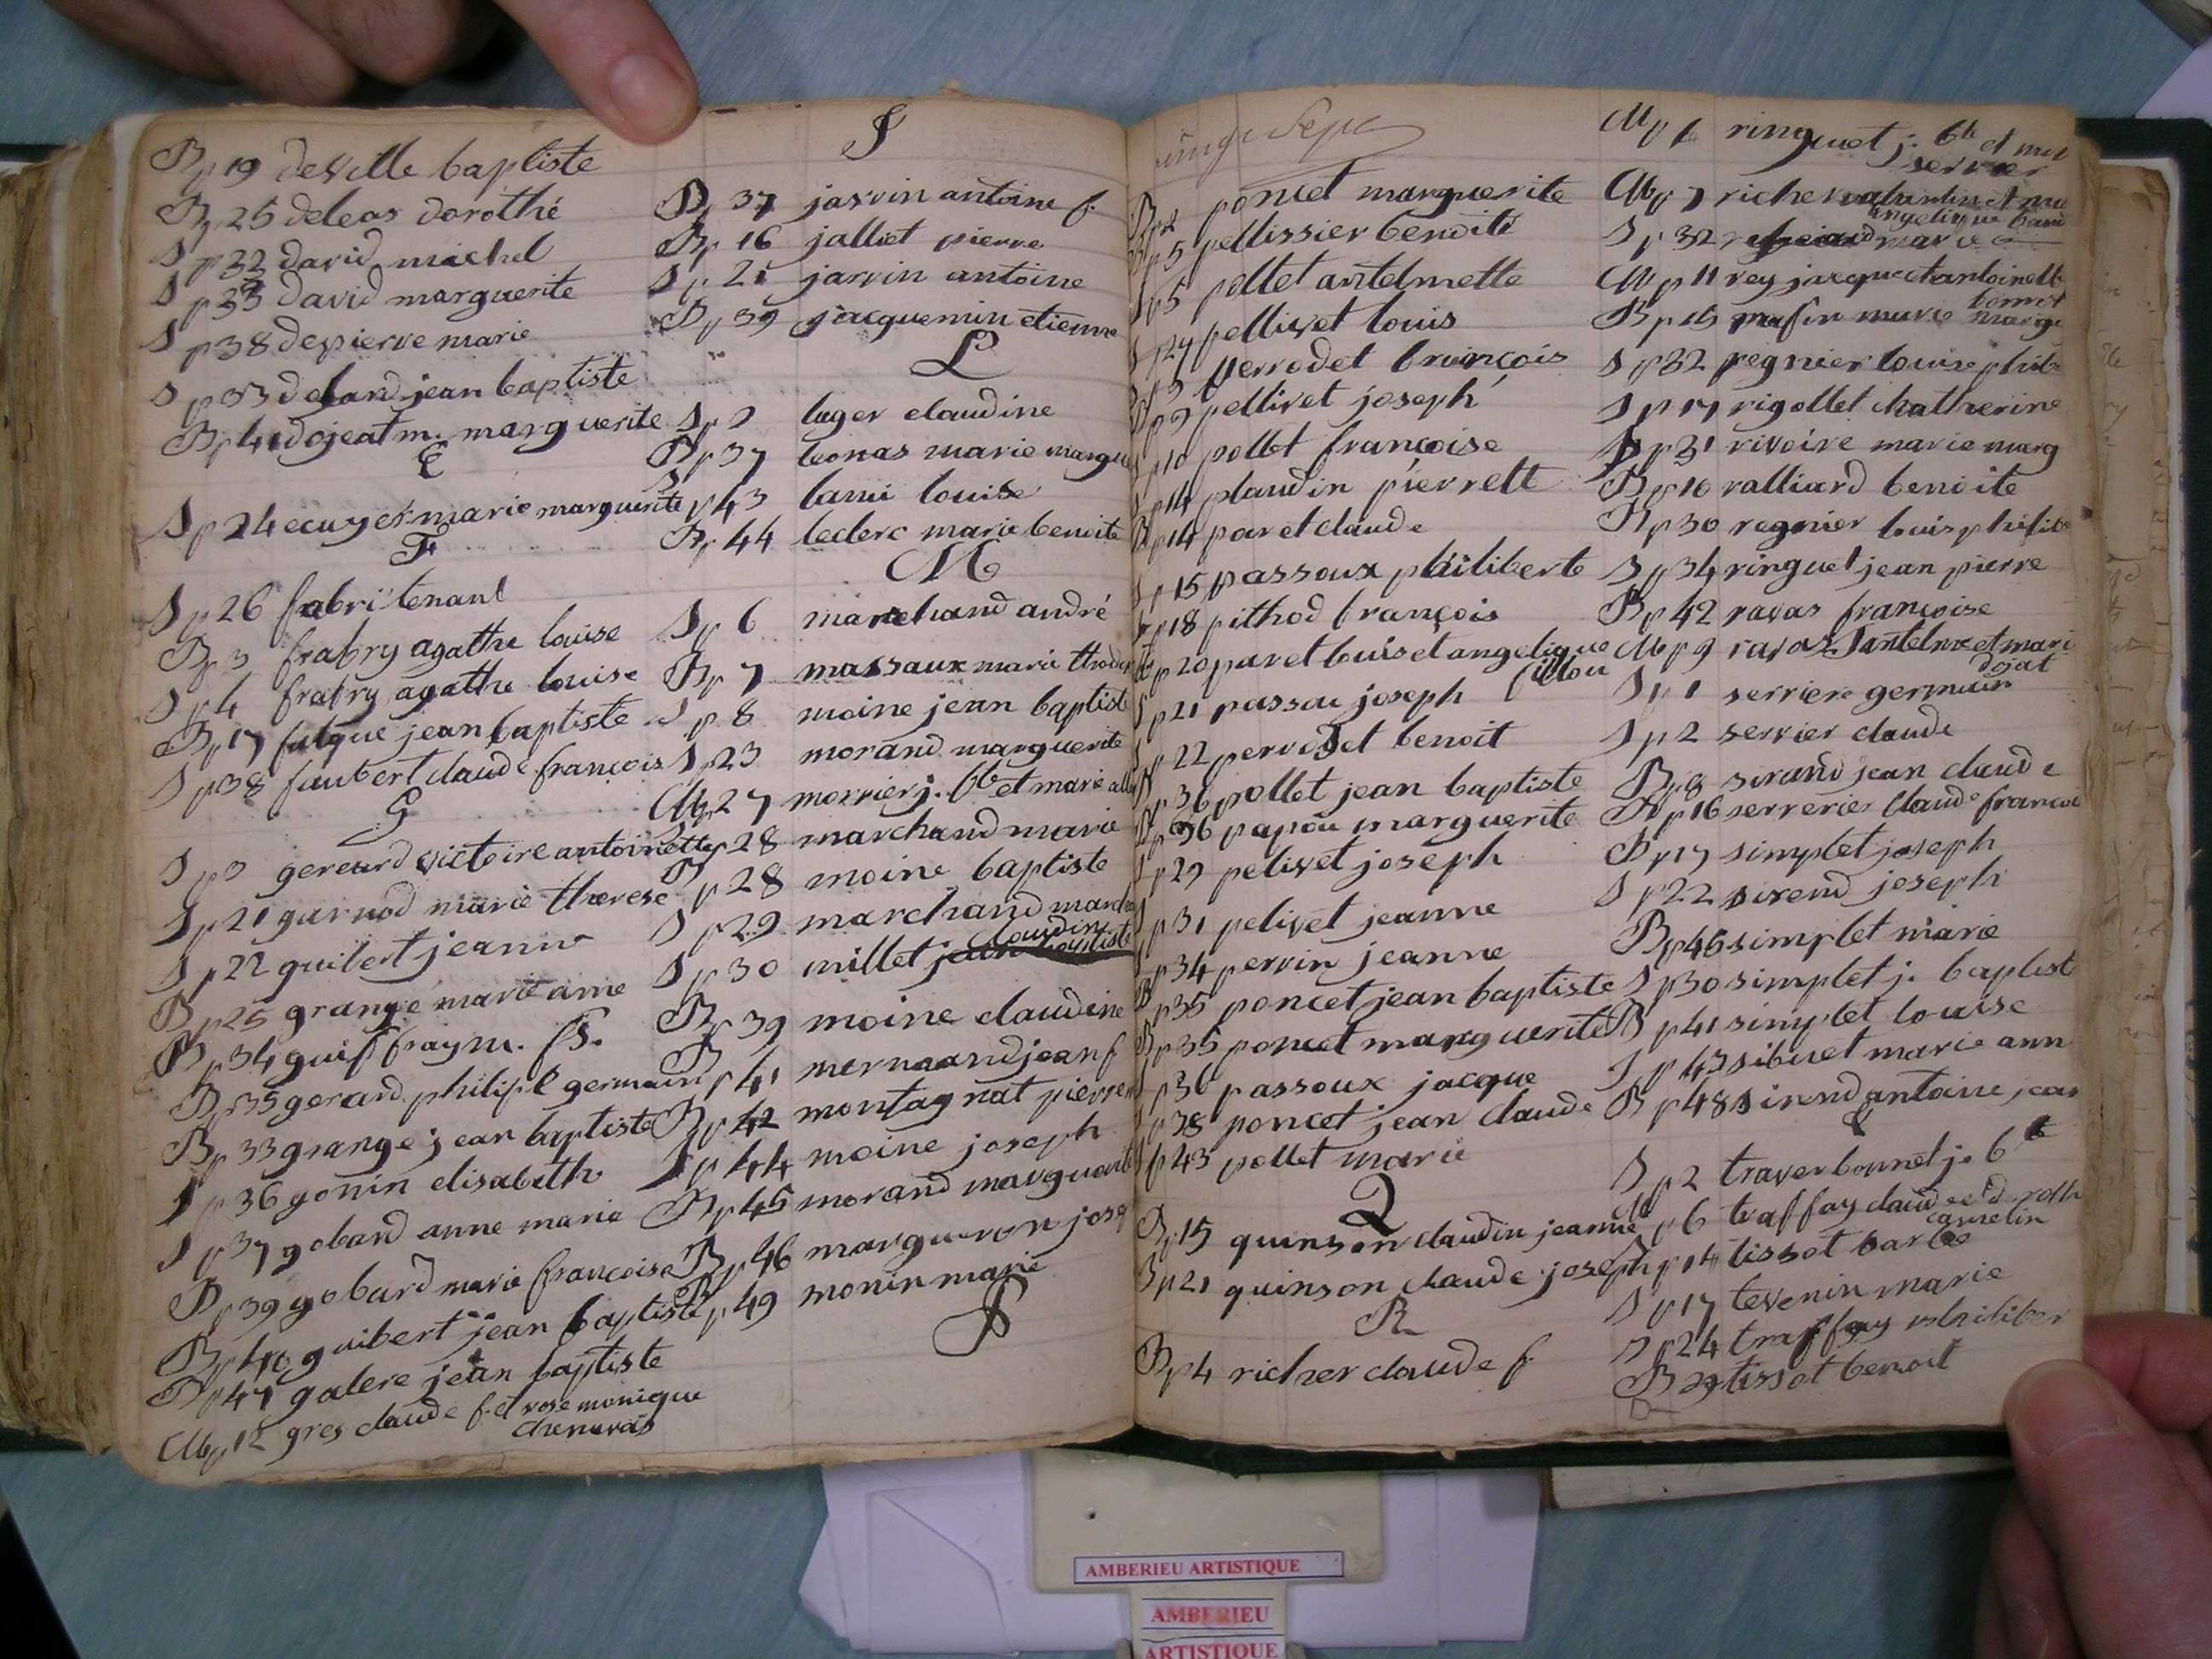 Bp 19 deville baptiste
Bp 25 deleas dorothé
S p 32 david michel
S p 33 david marguerite
S p 38 depierre marie
S p 33 delard jean baptiste
Bp 41 dojeat m. marguerite
E
S p 24 ecuyer marie marguerite
F
S p 26 fabri tenant
Bp 3 frabry agathe louise
S p 4 frabry agathe louise
Bp 17 fulque jean baptiste
S p 38 faubert claude françois
G
S p gererd victoire antoinette
S p 21 gurnod marie therese
S p 22 guibert jeanne
B p 25 grange marie anne
Bp 34 guiffray m. fs.
Bp 35 gerard philipe germain
Bp 33 grange jean baptiste
S p 36 gonin elisabeth
S p 37 gobard anne marie
Bp 39 gobard marie françoise
Bp 40 guibert jean baptiste
Bp 47 galere jean baptiste
Mp 12 gres claude f. et rose monique
chenavas
J
Bp 37 jarvin antoine f.
Bp 16 jalliet pierre
S p 21 jarvin antoine
Bp 39 jacquemin etienne
L
S p 2 luger claudine
Bp 37 leonas marie margue
S p 43 lami louise
Bp 44 leclerc marie benoite
M
S p 6 marchand andré
Bp 7 massaux marie
S p 8 moine jean baptiste
S p 23 morand marguerite
Mp 27 morrier j. bte et marie
S p 28 marchand marie
B p 28 moine baptiste
S p 29 marchand
claudin
S p 30 millet jean baptiste
Bp 39 moine claudine
B p 41 jean f
Bp 42 montagnat pierre
S p 44 moine joseph
Bp 45 morand marguerite
B p 46 margueron jose
B p 49 monin marie
P
Bp 2 poncet marguerite
Bp 5 pellissier benoite
S p 5 pollet antelmette
S p 27 pellivet louis
Bp 3 perrodet françois
p 9 pellivet joseph
S p 10 pollet françoise
S p 14 plaudin pierrette
Bp 14 paret claude
S p 15 passoux philiberte
p 18 pithod françois
p 20 paret louis et angelique
fillou
S p 21 passou joseph
p 22 perrodet benoit
p 36 pollet jean baptiste
p 36 papou marguerite
S p 29 pelivet joseph
S p 31 pelivet jeanne
S p 34 perrin jeanne
Bp 35 poncet jean baptiste
Bp 35 poncet marguerite
S p 36 passoux jacque
S p 38 poncet jean claude
S p 43 pollet marie
Q
Bp 15 quinson claudin jeanne
Bp 21 quinson claude joseph
R
Bp 4 richer claude f.
Mp 6 ringuet j. bte et
servier
Mp 7 richer valantin et
angelique
S p 32 marie
Mp p 11 rey jacque et antoinette
bonnet
Bp 15 marie
S p 32 regnier louise phib
S p 17 rigollet chatherine
S p 31 rivoire marie marg
Bp 10 ralliard benoite
Bp 30 regnier louis philib
S p 34 ringuet jean pierre
Bp 42 ravas françoise
Mp 9 ravas antelme et mari
dojat
S p 1 serriere germain
S p 2 servier claude
Bp 8 sirand jean claude
Bp 16 serrerier claude françoi
Bp 17 simplet joseph
S p 22 sirend joseph
Bp 46 simplet marie
S p 30 simplet j. baptist
B p 41 simplet louise
S p 43 sibuet marie ann
B p 48 sirend antoine jean
t
S p 2 traverbonnet j. bte
M p 6 traffay claude et doroth
camelin
S p 14 tissot barbe
S p 17 tevenin marie
S p 24 traffay philiber
B 29 tissot benoit
AMBERIEU ARTISTIQUE
AMBERIEU
ARTISTIQUE